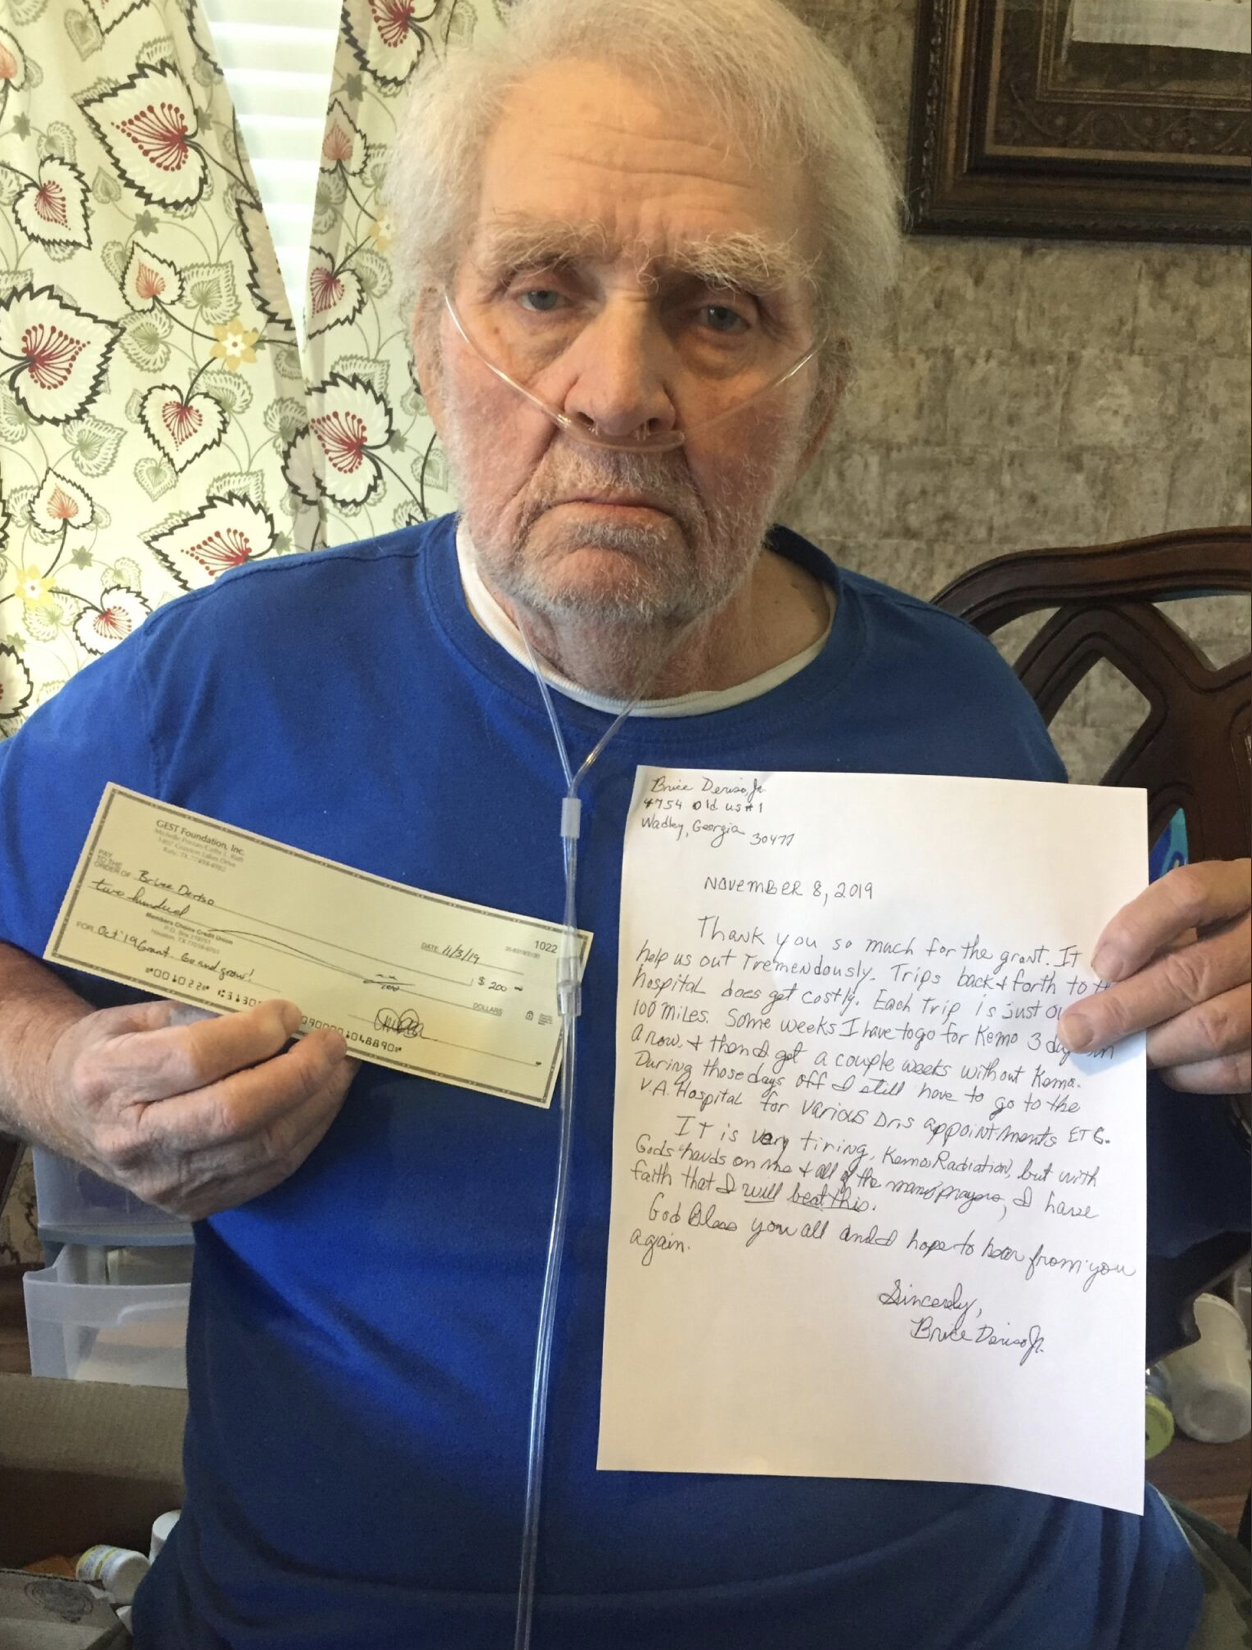 GEST Foundation, Inc.
1022
PAY TO THE ORDER OF Bruce Deriso
DATE 11/3/19
$ 200
two hundred
DOLLARS
Members Choice Credit Union
Houston, TX
FOR Oct '19 Grant.
Bruce Deriso, Jr.
4754 Old US #1
Wadley, Georgia 30477
NOVEMBER 8, 2019
Thank you so much for the grant. It
help us out Tremendously. Trips back & forth to
Hospital does get costly. Each Trip is just
100 miles. Some weeks I have to go for Kemo 3
a row. & then I get a couple weeks without Kemo.
During those days off I still have to go to the
V.A. Hospital for various Drs appointments ETC.
IT is very tiring, Kemo, Radiation, but with
Gods hands on me & all of the many prayers, I have
faith that I will beat this.
God Bless you all and I hope to hear from you
again.
Sincerely,
Bruce Deriso Jr.